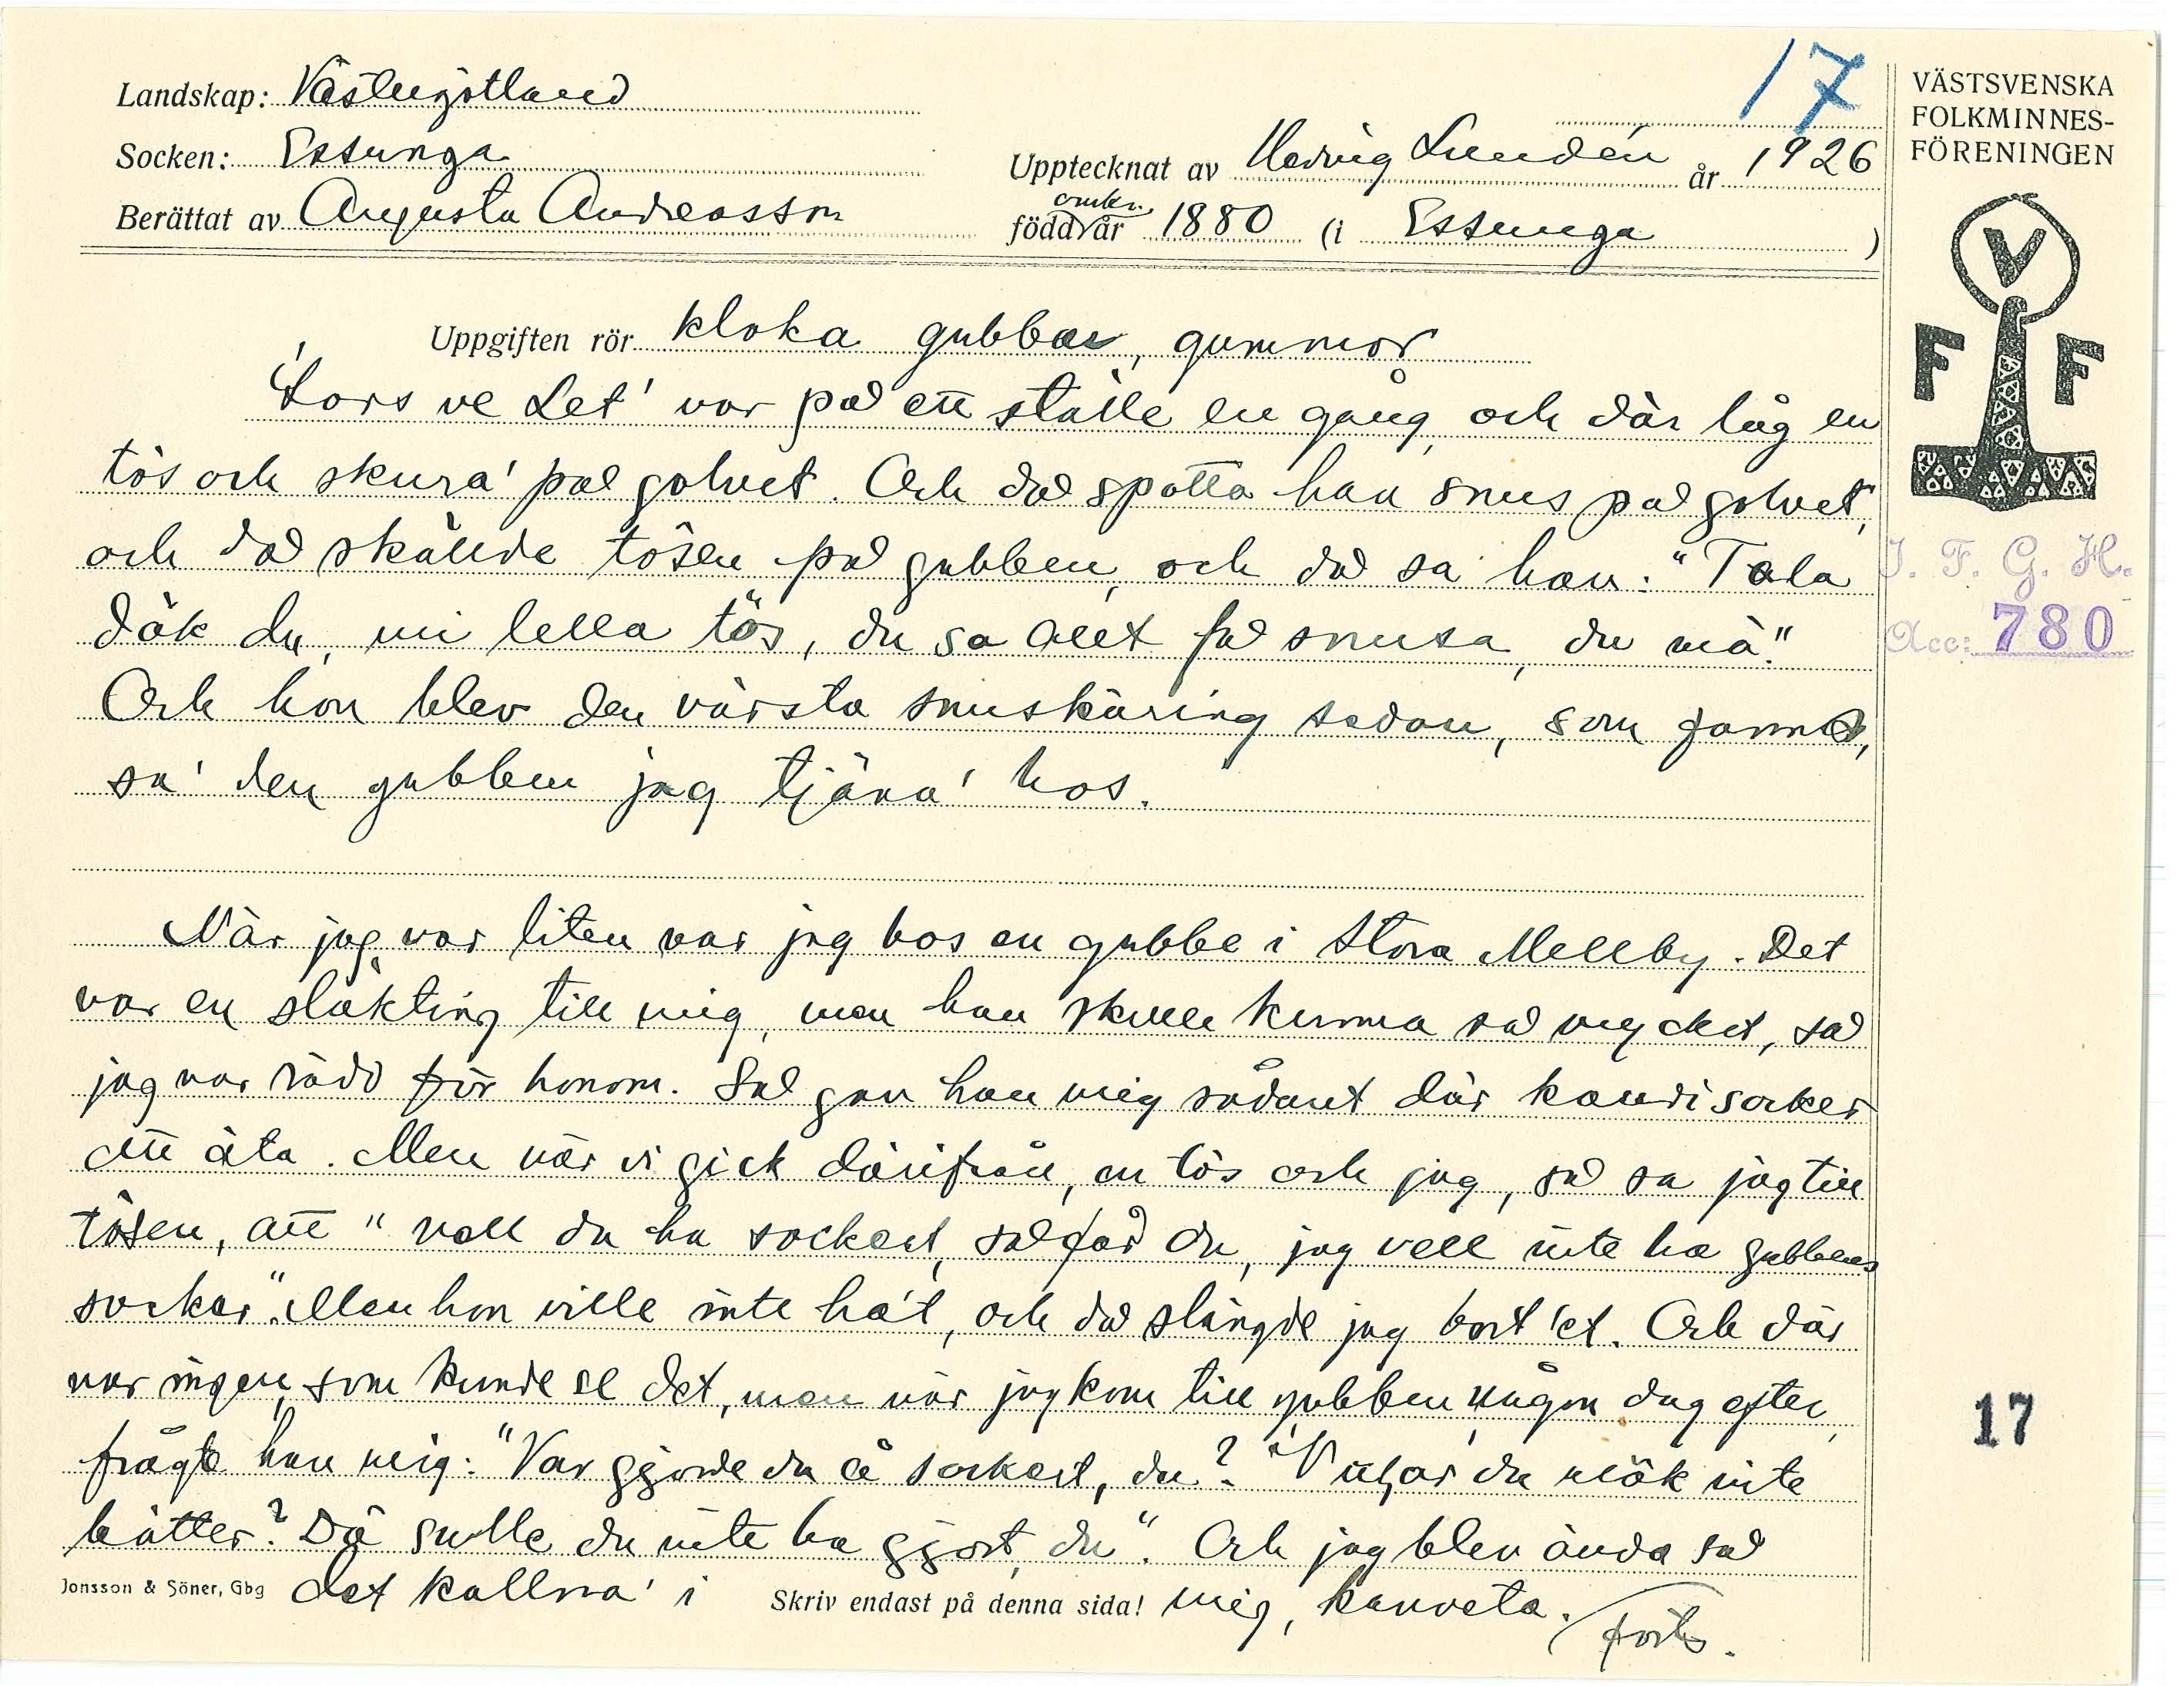 17
Landskap: Västergötland
Socken: Essunga
Upptecknat av Hedvig Lundén år 1926
Berättat av Augusta Andreasson
född omkr. år 1880 (i Essunga)
VÄSTSVENSKA
FOLKMINNES-
FÖRENINGEN
V
F F
I. F. G. H.
Acc: 780
Uppgiften rör kloka gubbar, gummor
'Lars ve Let' var på ett ställe en gång, och där låg en
tös och skura' på golvet. Och då spotta han snus på golvet,
och då skällde tösen på gubben, och då sa han: "Tala
däk du, mi lella tös, du sa allt få snusa, du mä."
Och hon blev den värsta snuskäring sedan, som fanns,
sa' den gubben jag tjäna' hos.
När jag var liten var jag hos en gubbe i Stora Mellby. Det
var en släkting till mig, men han skulle kunna så mycket, så
jag var rädd för honom. Så gav han mig sådant där kandisocker
att äta. Men när vi gick därifrån, en tös och jag, så sa jag till
tösen, att "vell du ha sockert, så får du, jag vell inte ha gubbens
socker". Men hon ville inte ha't, och då slängde jag bort 'et. Och där
var ingen, som kunde se det, men när jag kom till gubben någon dag efter,
frågte han mig: "Var gjorde du å sockert, du? Vutar du näk inte
bätter? Dä sulle du inte ha gjort, du". Och jag blev ända så
det kallna' i mig, kanveta.
forts.
Jonsson & Söner, Gbg
Skriv endast på denna sida!
17